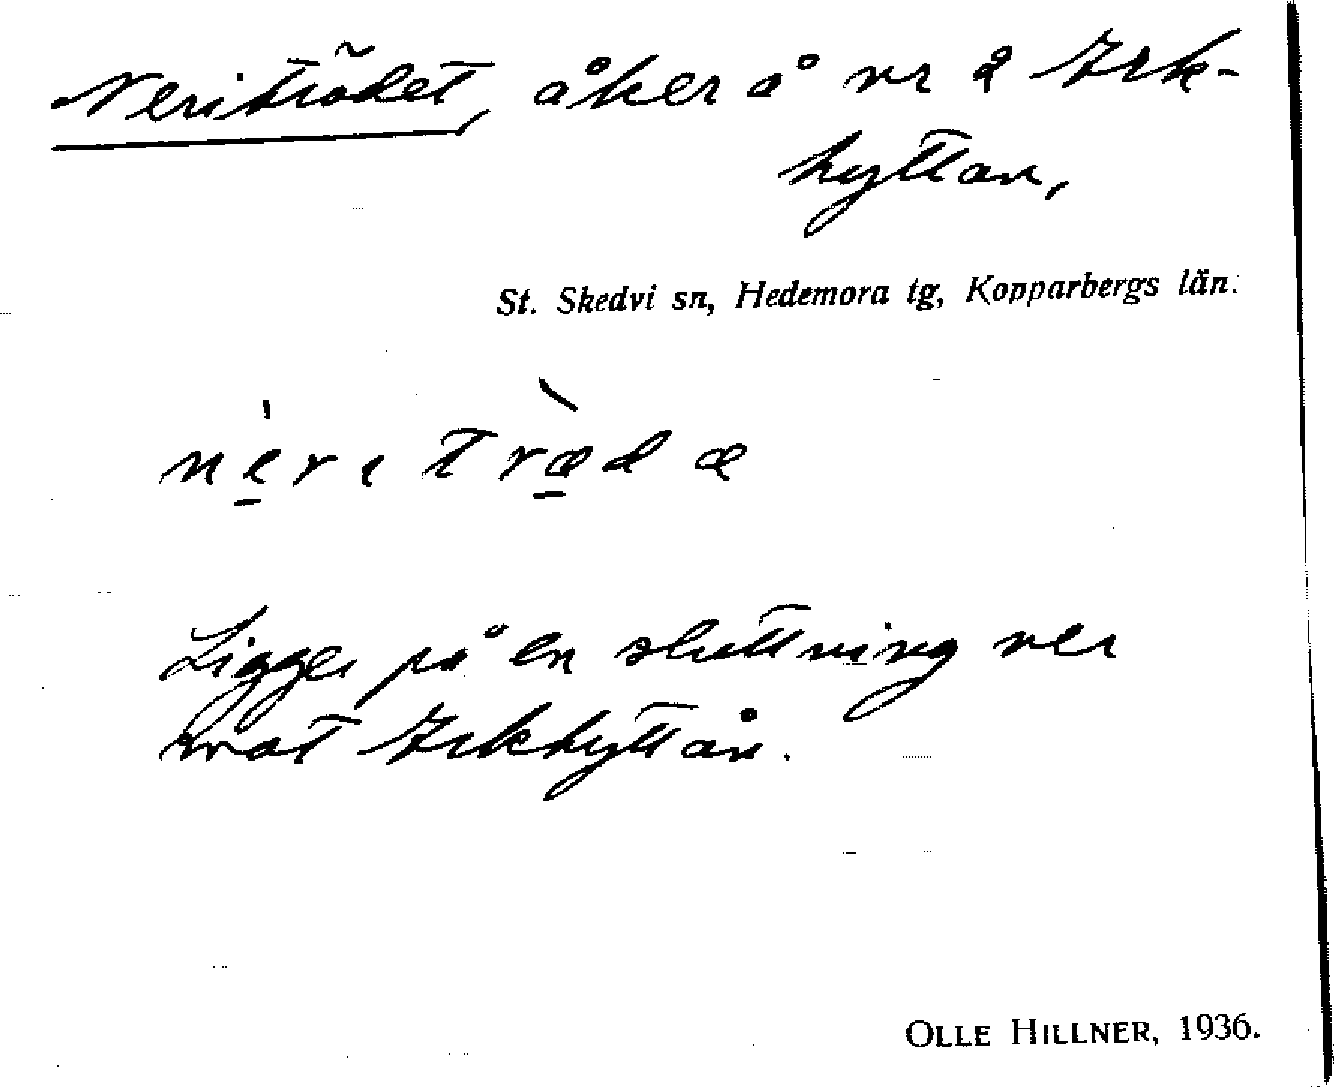 Neriträdet, åker å nr 2 Yrk-
hyttan,
St. Skedvi sn, Hedemora tg, Kopparbergs län.
nerıtrædæ
Ligger på en sluttning ner
mot Yrkhyttån.
OLLE HILLNER, 1936.